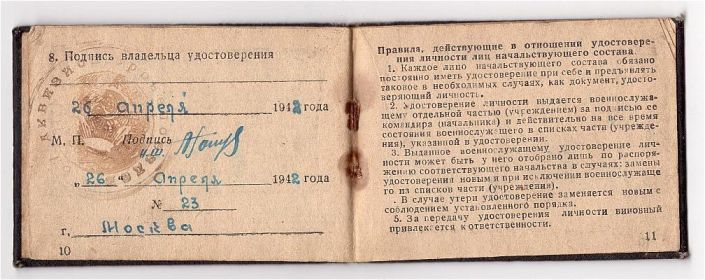 8. Подпись владельца удостоверения
26 апреля 1942 года
М. П. Подпись
„26 апреля 1942 года
№ 23
г. Москва
10
Правила, действующие в отношении удостовере-
ния личности лиц начальствующего состава.
1. Каждое лицо начальствующего состава обязано
постоянно иметь удостоверение при себе и предъявлять
таковое в необходимых случаях, как документ, удосто-
веряющий личность.
2. Удостоверение личности выдается военнослужа-
щему отдельной частью (учреждением) за подписью ее
командира (начальника) и действительно на все время
состояния военнослужащего в списках части (учрежде-
ния), указанной в удостоверении.
3. Выданное военнослужащему удостоверение лич-
ности может быть у него отобрано лишь по распоря-
жению соответствующего начальства в случаях: замены
удостоверения новым и при исключении военнослужаще-
го из списков части (учреждения).
. В случае утери удостоверение заменяется новым с
соблюдением установленного порядка.
5. За передачу удостоверения личности виновный
привлекается к ответственности.
11